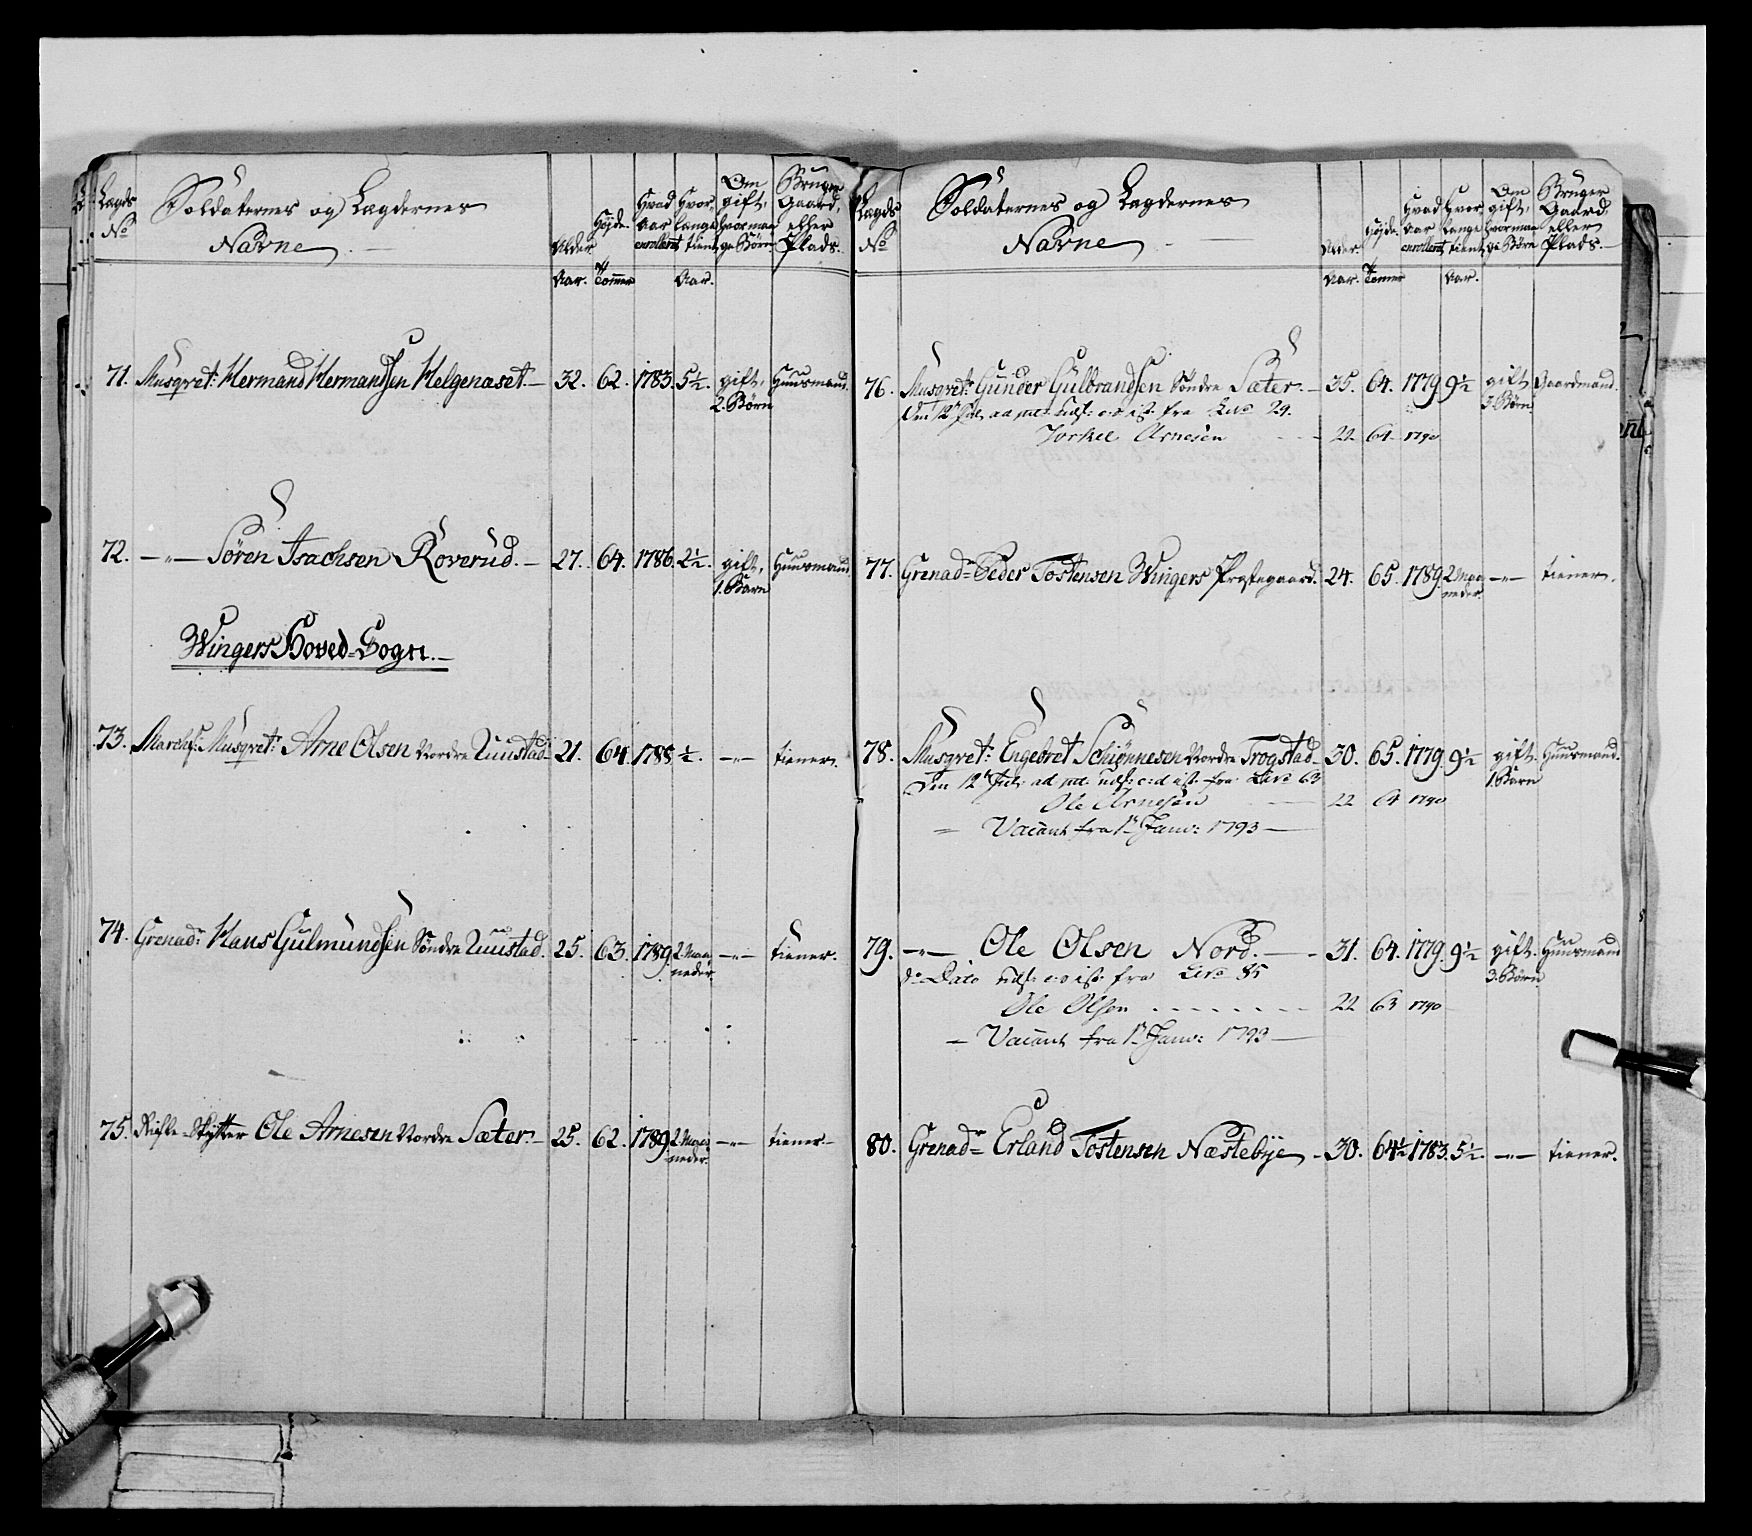 Lagds No
Soldaternes og Lagdernes Navne
Alder Aar.
Høyde Tommer
Hvad Aar enrollert
Hvor længe tient Aar.
Om gift, hvor mange Børn
Bruger Gaard, eller Plads.
71. Musqvet: Hermand Hermandsen Helgenaset. 32. 62. 1783. 5½. gift, 2. Børn Huusmand.
72. —"— Søren Isachsen Roverud. 27. 64. 1786. 2½. gift, 1. Barn Huusmand.
Wingers Hoved-Sogn.
73. Marchs: Musqvet: Arne Olsen Nordre Tuustad 21. 64. 1788 ½. —"— tiener.
74. Grenad: Hans Gulmundsen Søndre Tuustad. 25. 63. 1789. 2 Maaneder. —"— tiener.
75. Riffle-Skytter Ole Arnesen Nordre Sæter. 25. 62. 1789. 2 Maaneder. —"— tiener
Lagds No
Soldaternes og Lagdernes Navne
Alder Aar.
Høyde Tommer
Hvad Aar enrollert
Hvor længe tient Aar.
Om gift, hvor mange Børn
Bruger Gaard eller Plads.
76. Musqvet: Gunder Gulbrandsen Søndre Sæter. 35. 64. 1779. 9½ gift 3. Børn Gaardmand.
Den 12t Jul: ad mt: udsl: e: d ist: fra No 29.
Torkel Arnesen 22 64 1790
77. Grenad: Peder Tostensen Wingers Præstegaard. 24. 65. 1789. 2 Maaneder. —"— tiener.
78. Musqvet: Engebret Schiønnesen Nordre Trogstad 30. 65. 1779. 9½ gift. 1. Barn Huusmand.
Den 12t Jul: ad mt: udsl: e: d ist: fra No 63
Ole Arnesen 22 64 1790
Vacant fra 1t Janv: 1793
79. —"— Ole Olsen Nord. 31. 64. 1779. 9½ gift. 3. Børn Huusmand
d: Dato udsl: e: d ist: fra No 85
Ole Olsen 22 63 1790
Vacant fra 1t Janv: 1793
80. Grenad: Erland Tostensen Næstebye 30. 64½ 1783. 5½. —"— tiener.